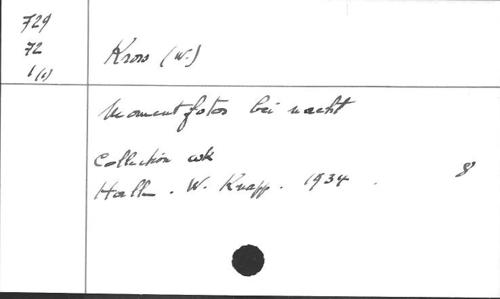 729
72
1(1)
Kross (W.)
Momentfotos bei nacht
Collection wk
Halle. W. Knapp. 1934. 8